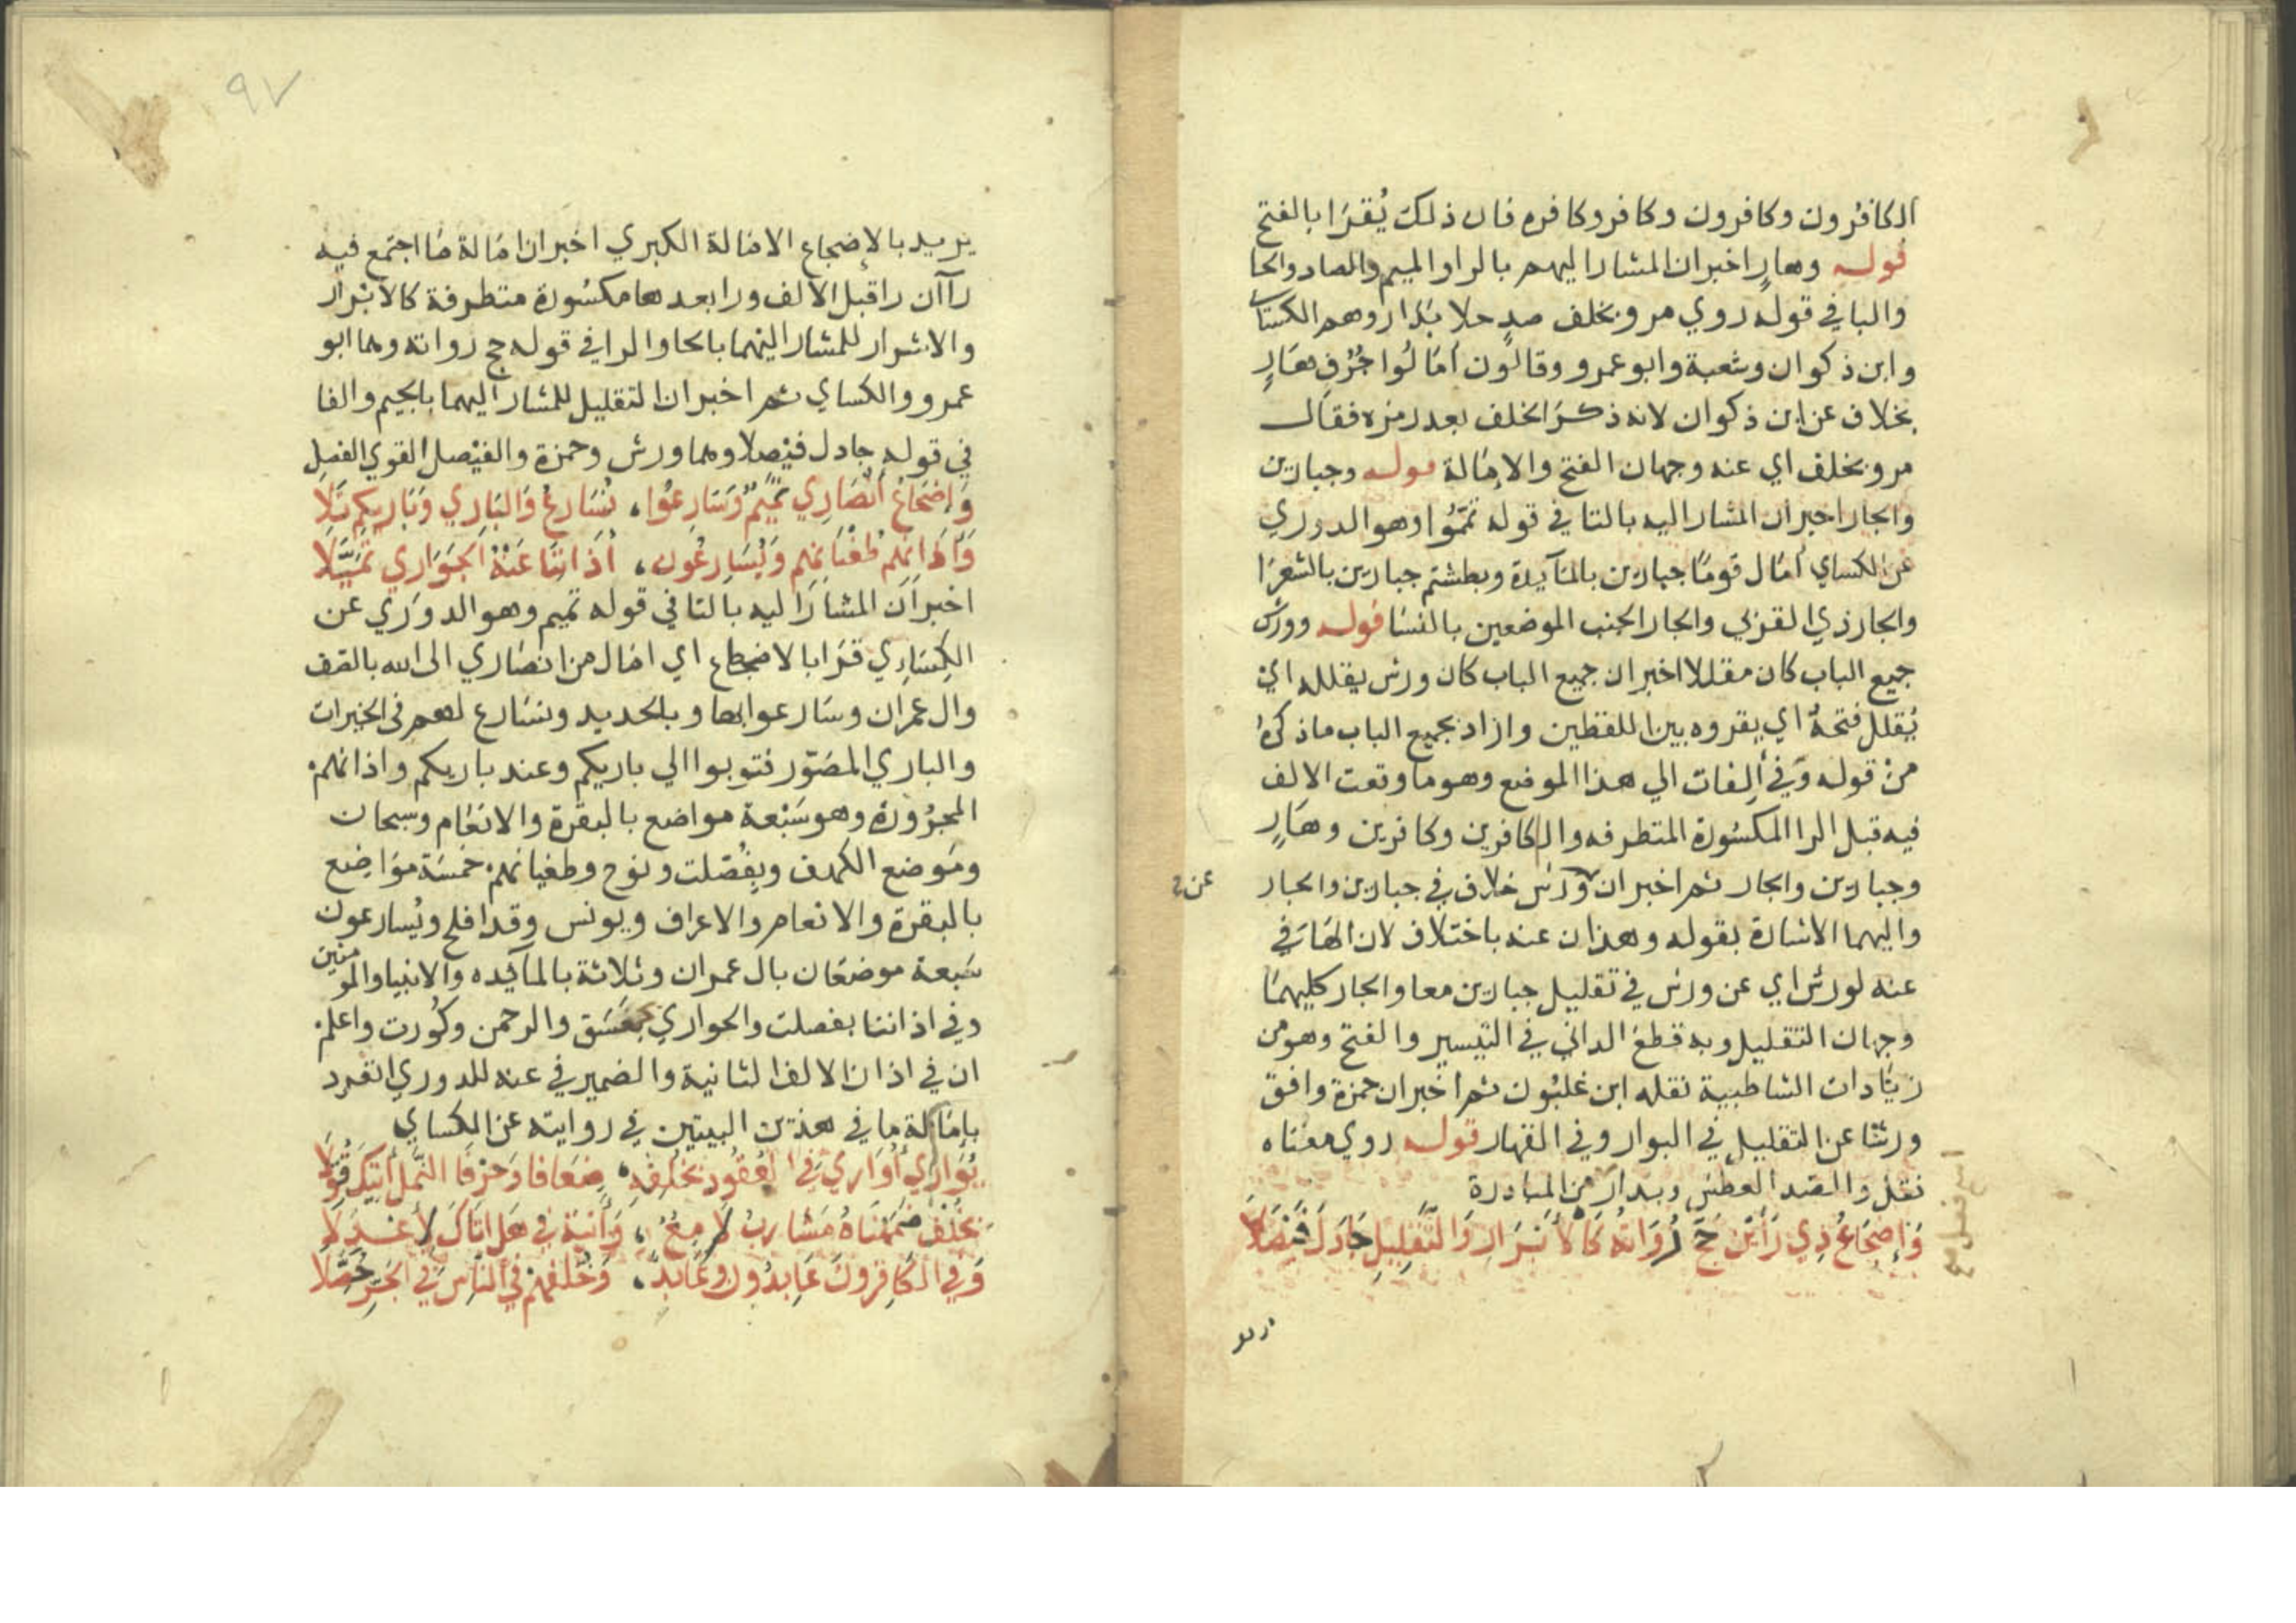 الكافرون وكافرون وكافر وكافره فان ذلك يُقرَا بالفتح
قوله وهارٍ اخبر ان المشار اليهم بالرا والميم والصاد والحا
والبا في قوله روي مروٍ بخلف صدٍ حلا بدار وهم الكساي
وابن ذكوان وشعبة وابو عمرو وقالون اَمَالُوا جُرُفٍ هَارٍ
بخلاف عن ابن ذكوان لانه ذكرَ الخلف بعد رمزه فقال
مروٍ بخلف اي عنه وجهان الفتح والامالة قوله وجبارين
والجار اخبر ان المشار اليه بالتا في قوله تمّمُوا وهو الدوري
عن الكساي اَمَال قومًا جبارين بالمآيدة وبطشتم جبارين بالشعرَا
والجار ذي القربي والجار الجنب الموضعين بالنسَا قوله وورش
جميع الباب كان مقللا اخبر ان جميع الباب كان ورش يقلله اي
يُقلل فتحهُ اي يقروه بين اللفظين وازاد بجميع الباب ما ذكرهُ
منْ قوله وَفي اَلِفات الي هذا الموضع وهو ما وقعت الالف
فيه قبل الرا المكسُورة المتطرفه والكافرين وكافرين وهَارٍ
وجبارين والجار ثم اخبر ان ورش خلاف في جبارين والجار
عن
واليهما الاشارة بقوله وهذان عنه باختلاف لان الهَا في
عنه لورش اي عن ورش في تقليل جبارين معا والجار كليهمَا
وجهان التقليل وبه قطعَ الداني في التيسير والفتح وهو من
زيَادات الشاطبية نقله ابن غلبُون ثم اخبر ان حمزة وافق
ورشا عن التقليل في البوار وفي القهار قوله روي معنَاه
نقل والصَد العطش وبدار من المبادرة
وَإضجَاعُ ذِي رَائَيْنِ حَجَّ رُوَاتُهُ كَالأبْرَارِ وَالتَّقْلِيلِ جَادَلَ فَيْصَلاَ
يريد
٩٧
يريد بالإضجاع الامالة الكبري اخبر ان امَالة مَا اجتمع فيه
رآآن را قبل الالف ورا بعدها مكسُورة متطرفة كالابْرَار
والاشرار للمشار اليهما بالحا والرا في قوله حج رواته وهما ابو
عمرو والكساي ثم اخبر ان التقليل للمشار اليهما بالجيم والفا
في قوله جادل فيْصلا وهما ورش وحمزة والفيْصل القوي الفصل
وَإضجَاعُ اَنْصَارِي تَمِيمٌ وَسَارِعُوا، نُسَارِعُ وَالبَارِي وَبَارِيكِم تَلاَ
وَآذَانِهم طُغْيَانِهِم وَيُسَارِعُون، أذَانِنَا عَنْهُ الجَوَارِي تَمَثَّلاَ
اخبر اَن المشارَ اليه بالتا في قوله تميم وهو الدورَي عن
الكِسَاِي قرَا بالاضجاع اي امَال من انصَاري الي الله بالصف
وال عمران وسَارعوا بها وبالحديد ونسَارع لهم في الخيرات
والباري المصَوّر فتوبوا الي باريكم وعند باريكم واذانهم
المجرُورة وهو سَبْعة مواضع بالبقرة والانعَام وسبحان
ومَوضع الكهف وبفُصّلت ونوح وطغيانهم خمسَة موَاضع
بالبقرة والانعام والاعراف ويونس وقد افلح ويُسارعون
سَبعة موضعَان بال عمران وثلاثة بالمآئده والانبيا والمومنين
وفي اذاننا بفصلت والجواري بعَسَق والرحمن وكُورت واعلم
ان في اذان الالف الثانية والضمير في عنه للدوري انفرد
بامَالة ما في هذين البيتين في روايته عن الكساي
يُوَارِي أُوَارِي فِي العُقُودِ بخُلْفِهِ، ضِعَافا وَحَرْفَا النَّمْلِ آتِيكَ قُوِّلاَ
بخُلْفٍ ضمَمْنَاهُ مَشَارِبُ لاَمِعٌ، وَآنِيَة فِي هَل اتَاكَ لِأَعْدَلاَ
وَفِي الكَافِرُونَ عَابِدُونَ وعَابِدٌ، وَخُلفهُمْ فِي النَّاسِ فِي الجَرِّ حُصِّلاَ